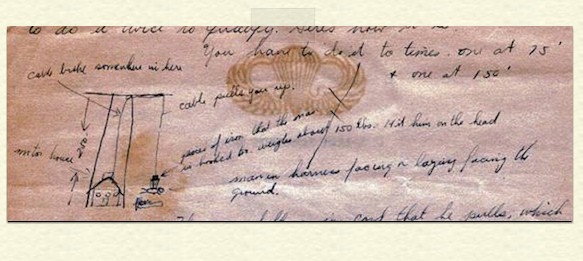 to do it twice to qualify. Heres how it is.
You have to do it to times. one at 75'
& one at 150'
cable broke somewhere in here
cable pulls you up.
piece of iron that the man
is hooked to. weighs about 150 lbs. Hit him on the head
motor house
man in harness facing laying facing the
ground.
cord that he pulls, which